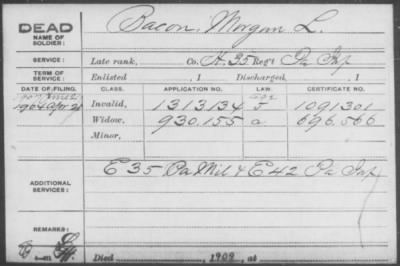 DEAD
NAME OF SOLDIER: Bacon, Morgan L.
SERVICE: Late rank, Co. H. 35 Reg't Pa Inf
TERM OF SERVICE: Enlisted , 1 Discharged , 1
DATE OF FILING. CLASS. APPLICATION NO. LAW. CERTIFICATE NO.
1904 Apr 21 Invalid, 1313134 J 1091301
Widow, 930.155 a 696.566
Minor,
ADDITIONAL SERVICES: E 35 Pa Mil & E 42 Pa Inf
REMARKS:
Died , 1909, at